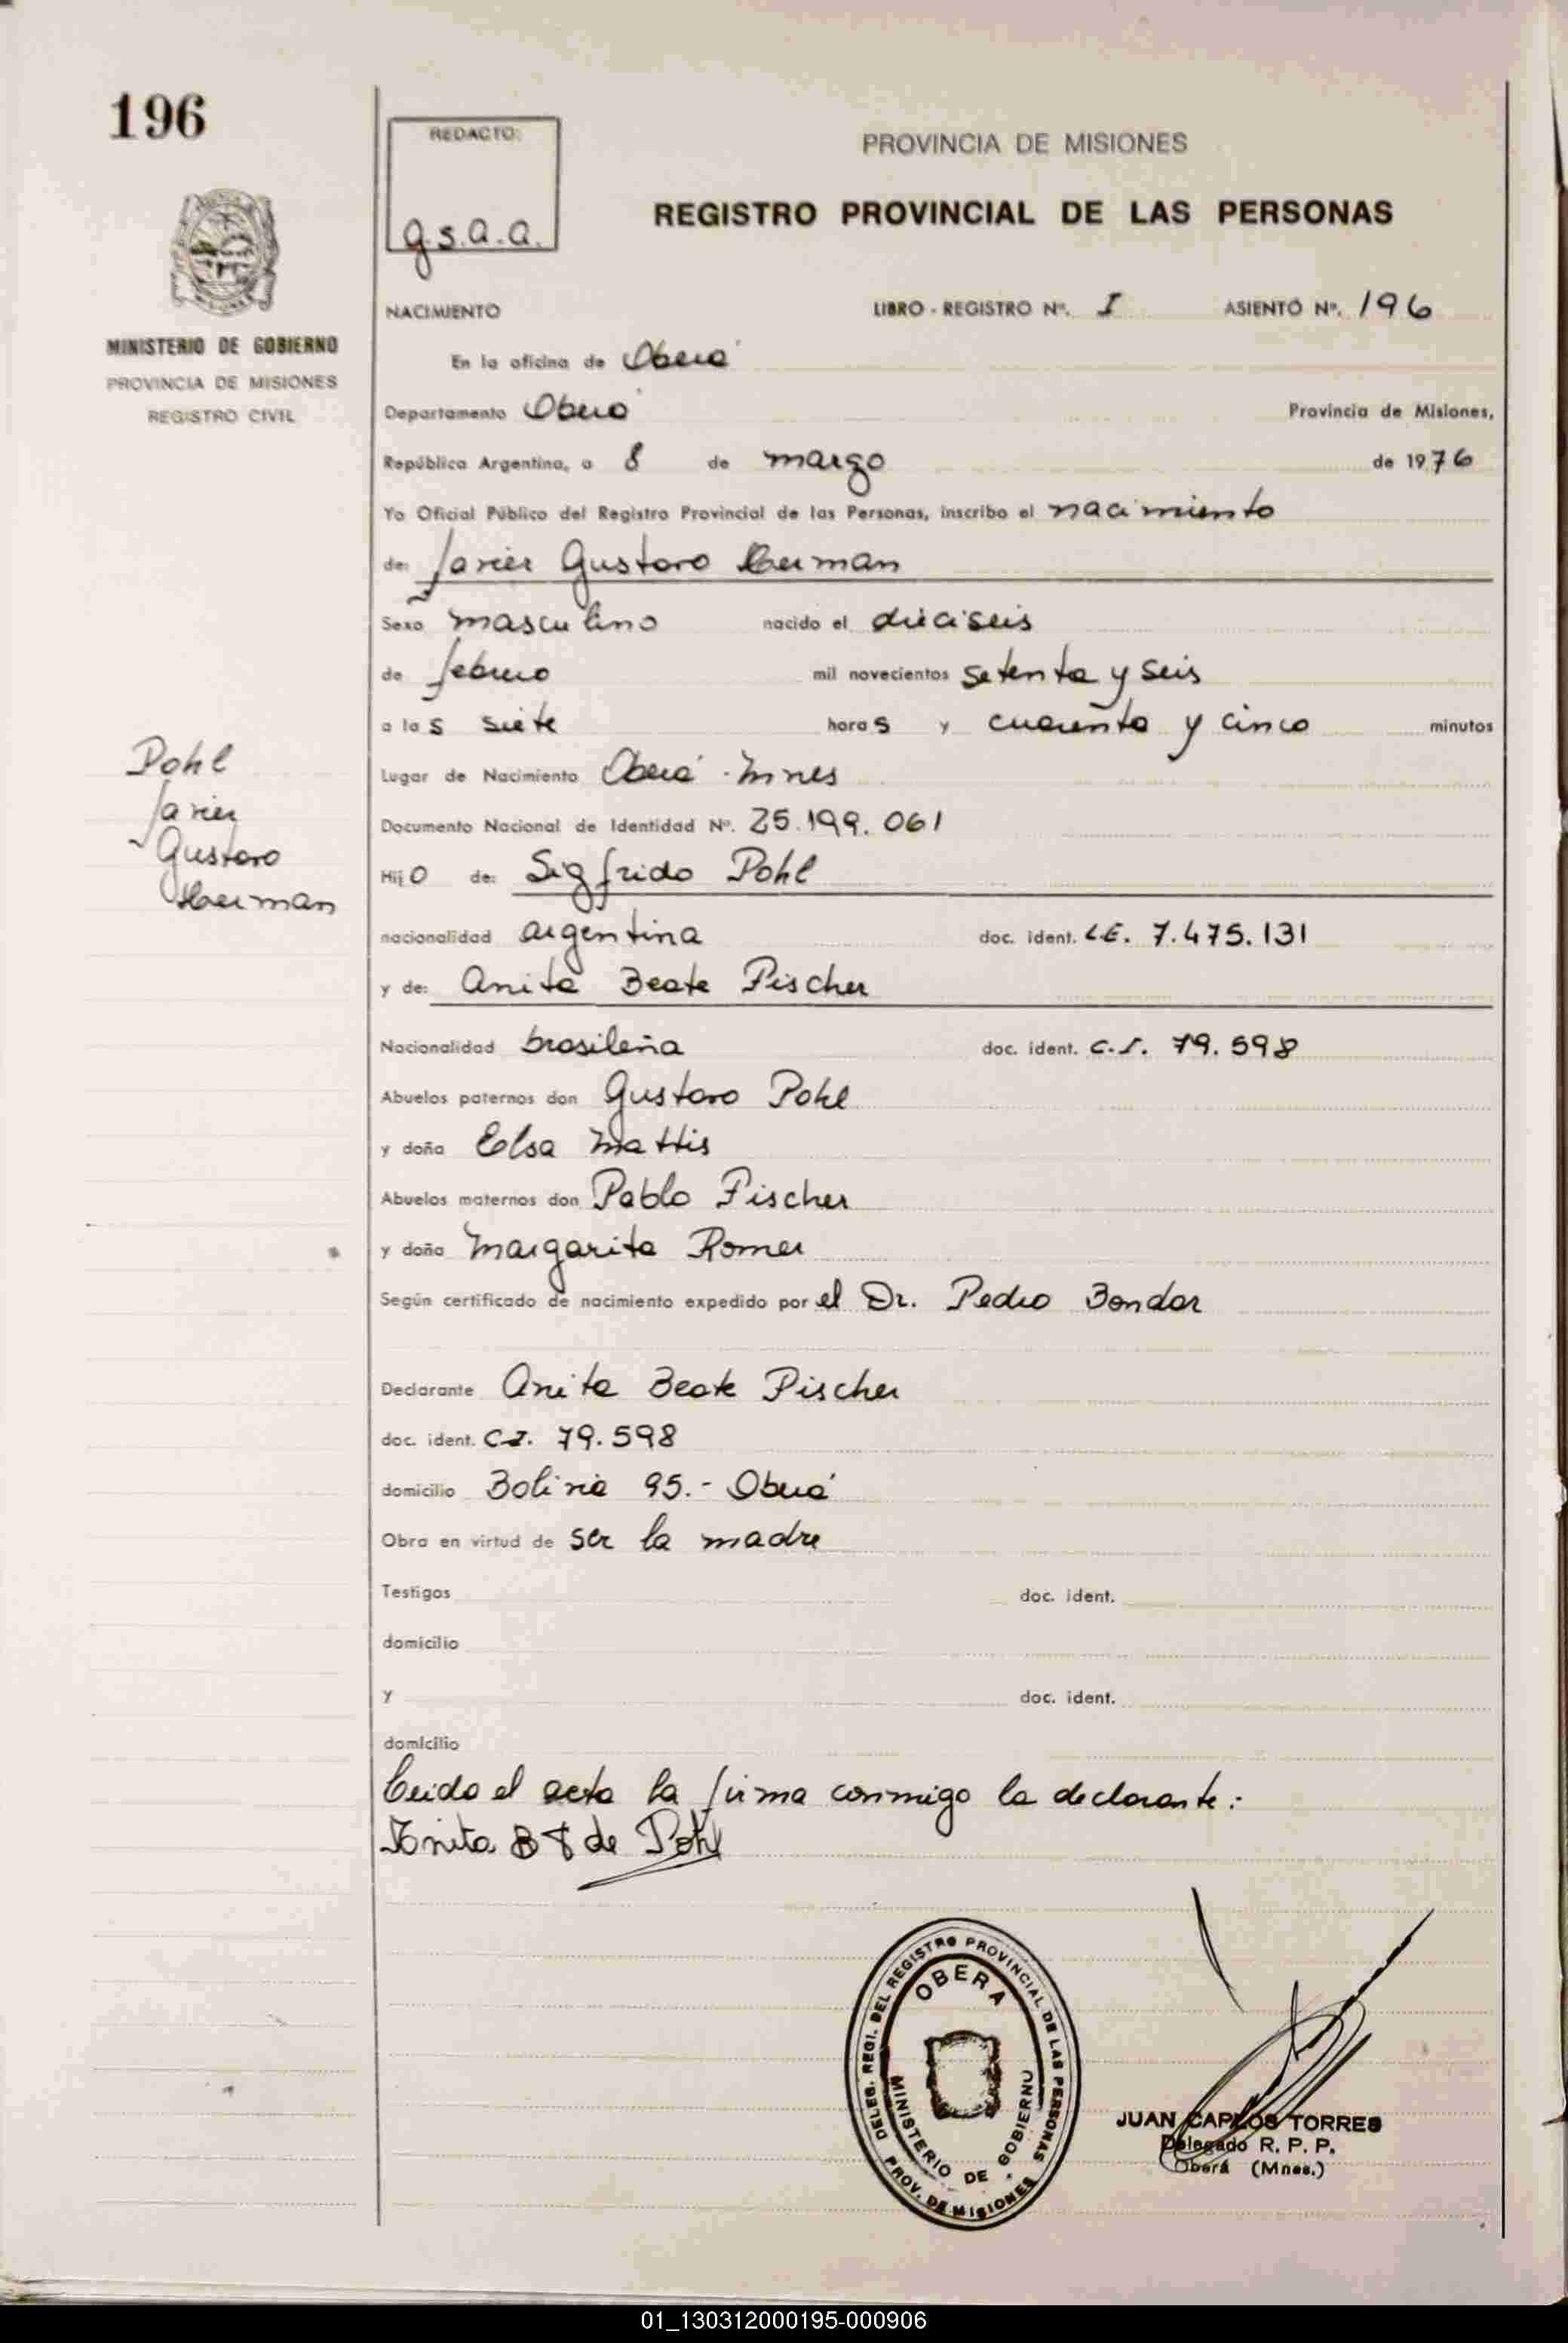 196
REDACTO:
g.s.a.a.
PROVINCIA DE MISIONES
REGISTRO PROVINCIAL DE LAS PERSONAS
MINISTERIO DE GOBIERNO
PROVINCIA DE MISIONES
REGISTRO CIVIL
NACIMIENTO LIBRO - REGISTRO Nº. I ASIENTO Nº. 196
En la oficina de Oberá
Departamento Oberá Provincia de Misiones,
República Argentina, a 8 de marzo de 1976
Yo Oficial Público del Registro Provincial de las Personas, inscribo el nacimiento
de: Javier Gustavo Herman
Sexo masculino nacido el dieciseis
de febrero mil novecientos setenta y seis
a las siete horas y cuarenta y cinco minutos
Pohl
Javier
Gustavo
Herman
Lugar de Nacimiento Oberá - Mnes
Documento Nacional de Identidad Nº. 25.199.061
Hijo de: Sigfrido Pohl
nacionalidad argentina doc. ident. L.E. 7.475.131
y de: Anita Beate Fischer
Nacionalidad brasileña doc. ident. C.I. 79.598
Abuelos paternos don Gustavo Pohl
y doña Elsa Mattis
Abuelos maternos don Pablo Fischer
y doña Margarita Romer
Según certificado de nacimiento expedido por el Dr. Pedro Bondar
Declarante Anita Beate Fischer
doc. ident. C.I. 79.598
domicilio Bolivia 95.- Oberá
Obra en virtud de ser la madre
Testigos doc. ident.
domicilio
y doc. ident.
domicilio
Leida el acta la firma conmigo la declarante:
Anita B F de Pohl
DELEG. REGI. DEL REGISTRO PROVINCIAL DE LAS PERSONAS
OBERA
MINISTERIO DE GOBIERNO
PROV. DE MISIONES
JUAN CARLOS TORRES
Delegado R. P. P.
Oberá (Mnes.)
01_130312000195-000906